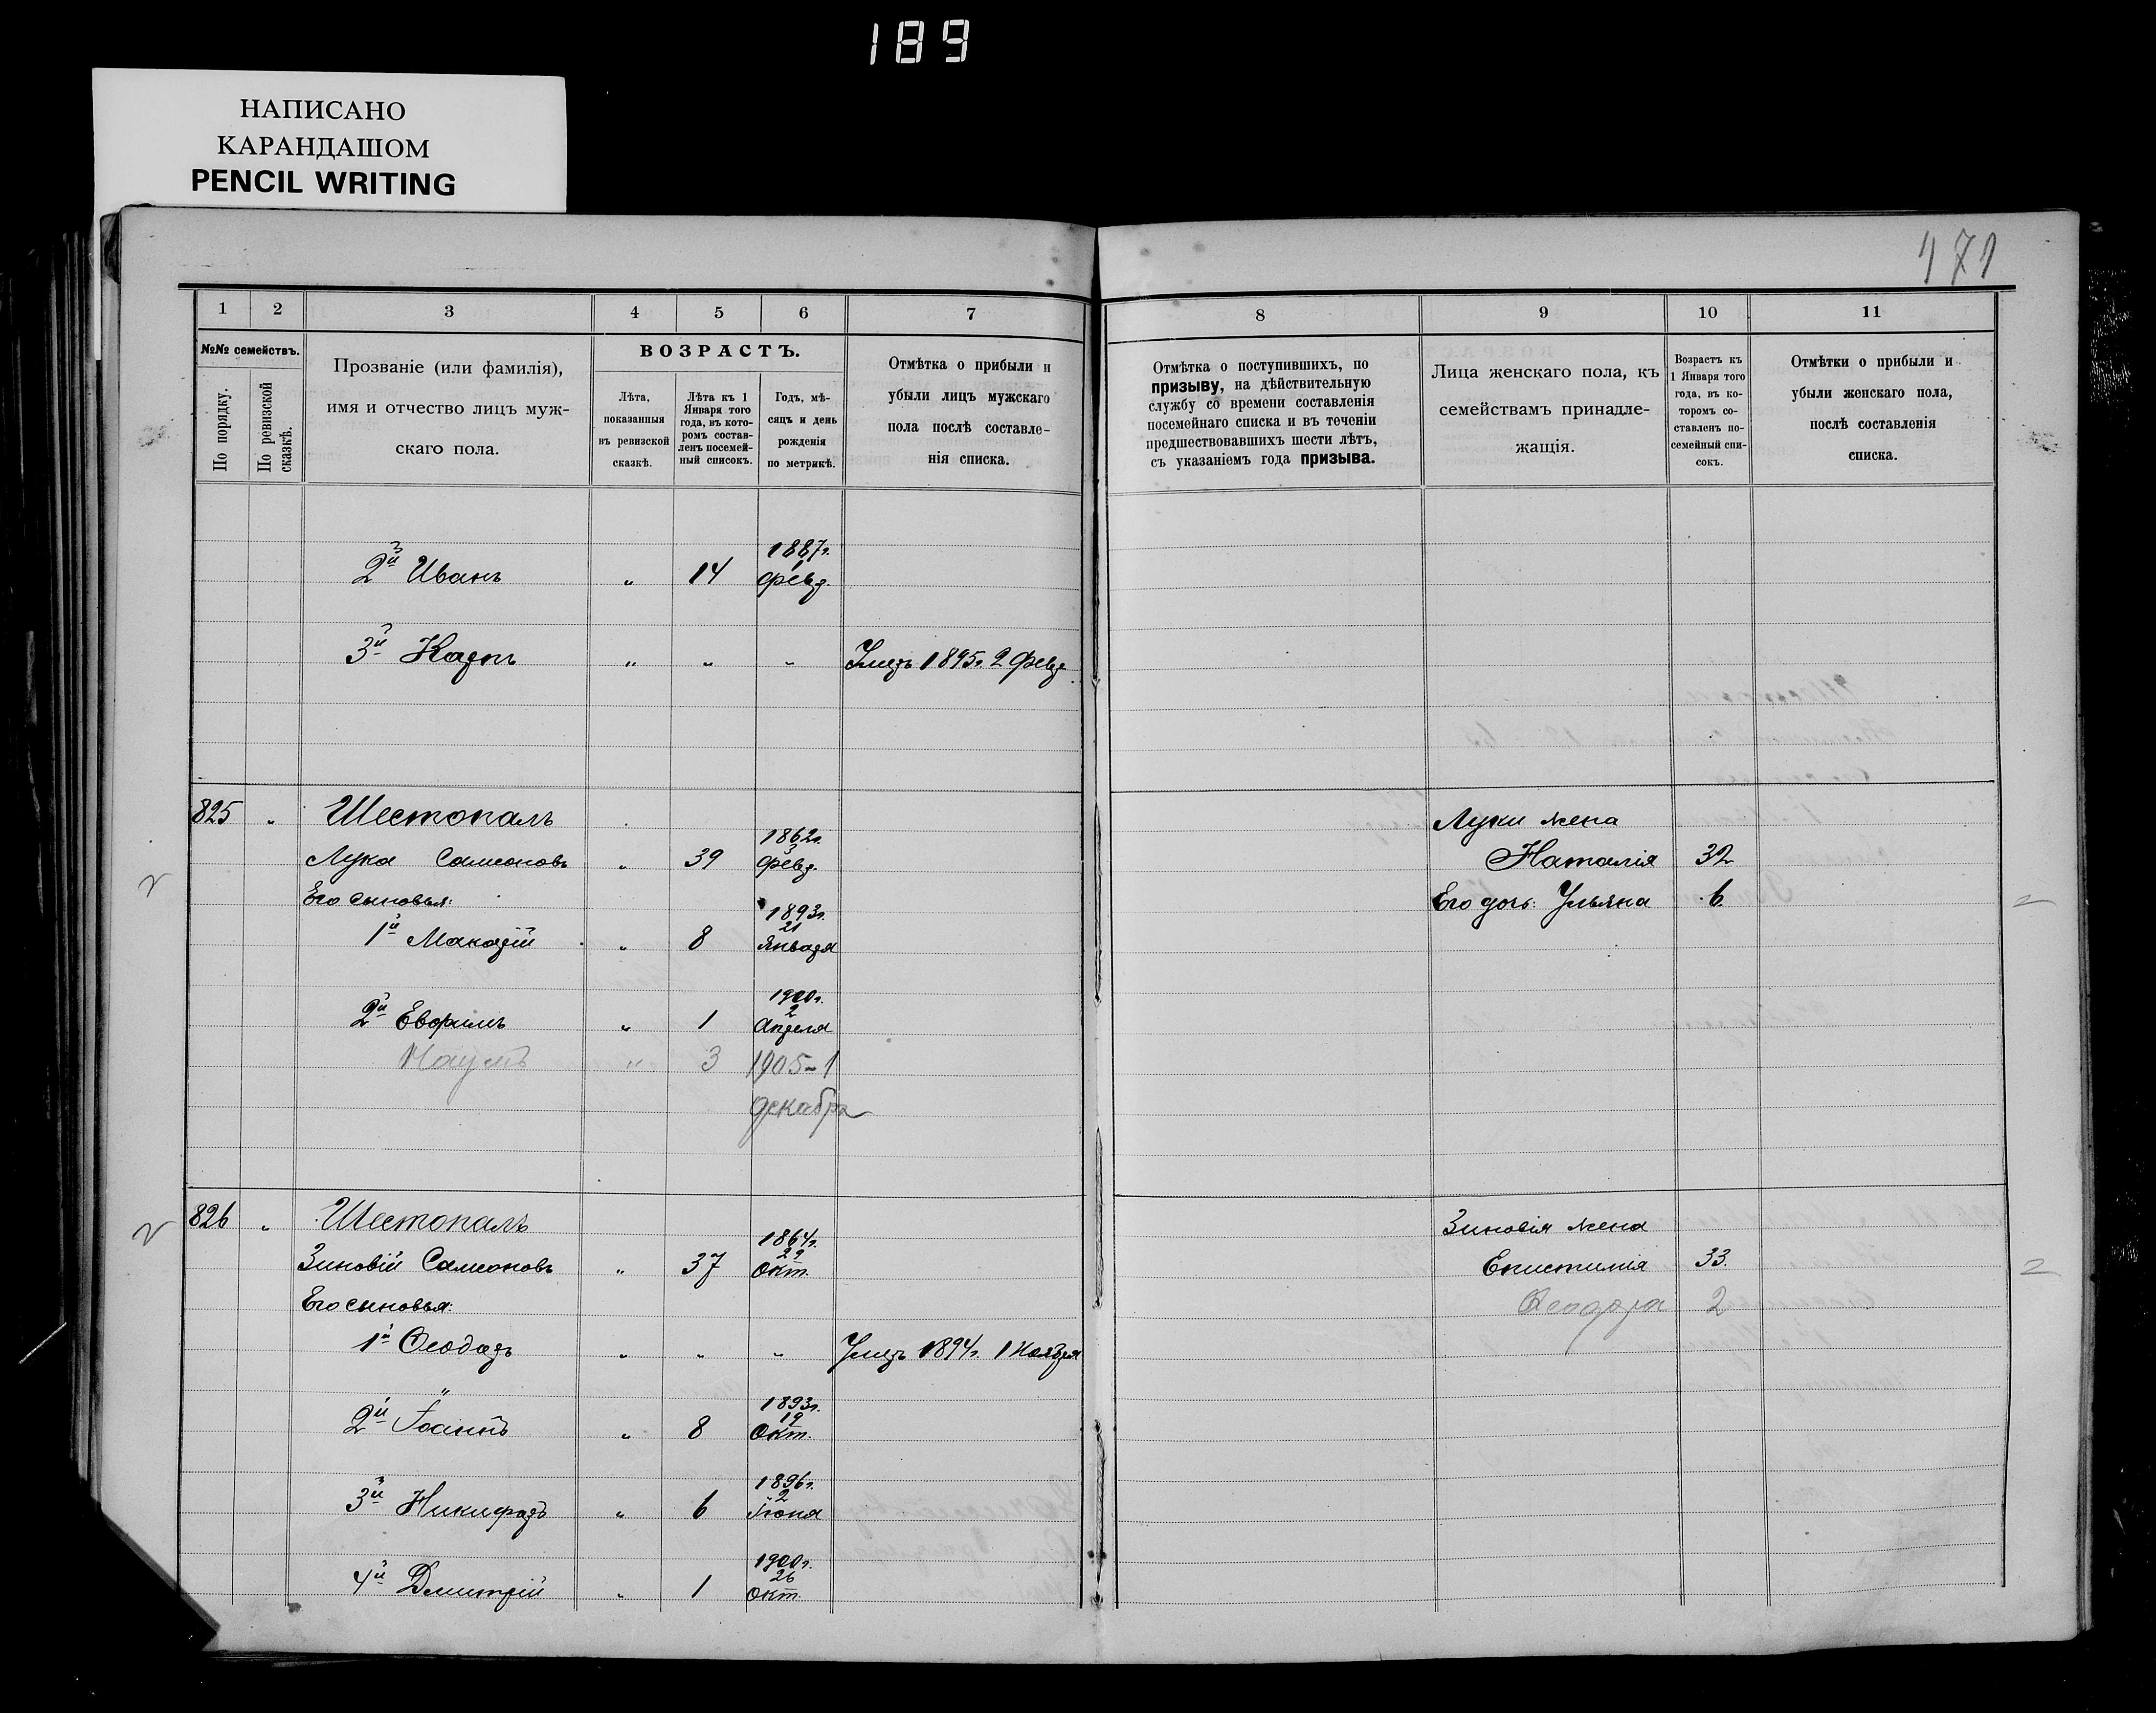 189
НАПИСАНО
КАРАНДАШОМ
PENCIL WRITING
171
1 2 3 4 5 6 7
№№ семействъ.
По порядку.
По ревизской сказкѣ.
Прозваніе (или фамилія),
имя и отчество лицъ муж-
скаго пола.
ВОЗРАСТЪ.
Лѣта,
показанныя
въ ревизской
сказкѣ.
Лѣта къ 1
Января того
года, въ кото-
ромъ состав-
ленъ посемей-
ный списокъ.
Годъ, мѣ-
сяцъ и день
рожденія
по метрикѣ.
Отмѣтка о прибыли и
убыли лицъ мужскаго
пола послѣ составле-
нія списка.
8 9 10 11
Отмѣтка о поступившихъ, по
призыву, на дѣйствительную
службу со времени составленія
посемейнаго списка и въ теченіи
предшествовавшихъ шести лѣтъ,
съ указаніемъ года призыва.
Лица женскаго пола, къ
семействамъ принадле-
жащія.
Возрастъ къ
1 Января того
года, въ ко-
торомъ со-
ставленъ по-
семейный спи-
сокъ.
Отмѣтки о прибыли и
убыли женскаго пола,
послѣ составленія
списка.
1887г.
2й Иванъ " 14 1 февр.
3й Карпъ " " " Умеръ 1895г. 2 февр.
825 " Шестопалъ
1862г.
Лука Самсоновъ " 39 3 февр.
Его сыновья:
1893г.
21
1й Макарій " 8 Января
1900г.
2
2й Евфимъ " 1 Апреля
Наумъ " 3 1905-1
декабря
Луки жена
Наталія 32
Его дочь: Ульяна 6
826 " Шестопалъ
1864г.
29
Зиновій Самсоновъ " 37 Окт.
Его сыновья:
1й Ѳеодоръ " " " Умеръ 1894г. 1 Ноября
1893г.
19
2й Іоаннъ " 8 Окт.
1896г.
2
3й Никифоръ " 6 Іюня
1900г.
26
4й Дмитрій " 1 Окт.
Зиновія жена
Епистимія 33.
Ѳеодора 2